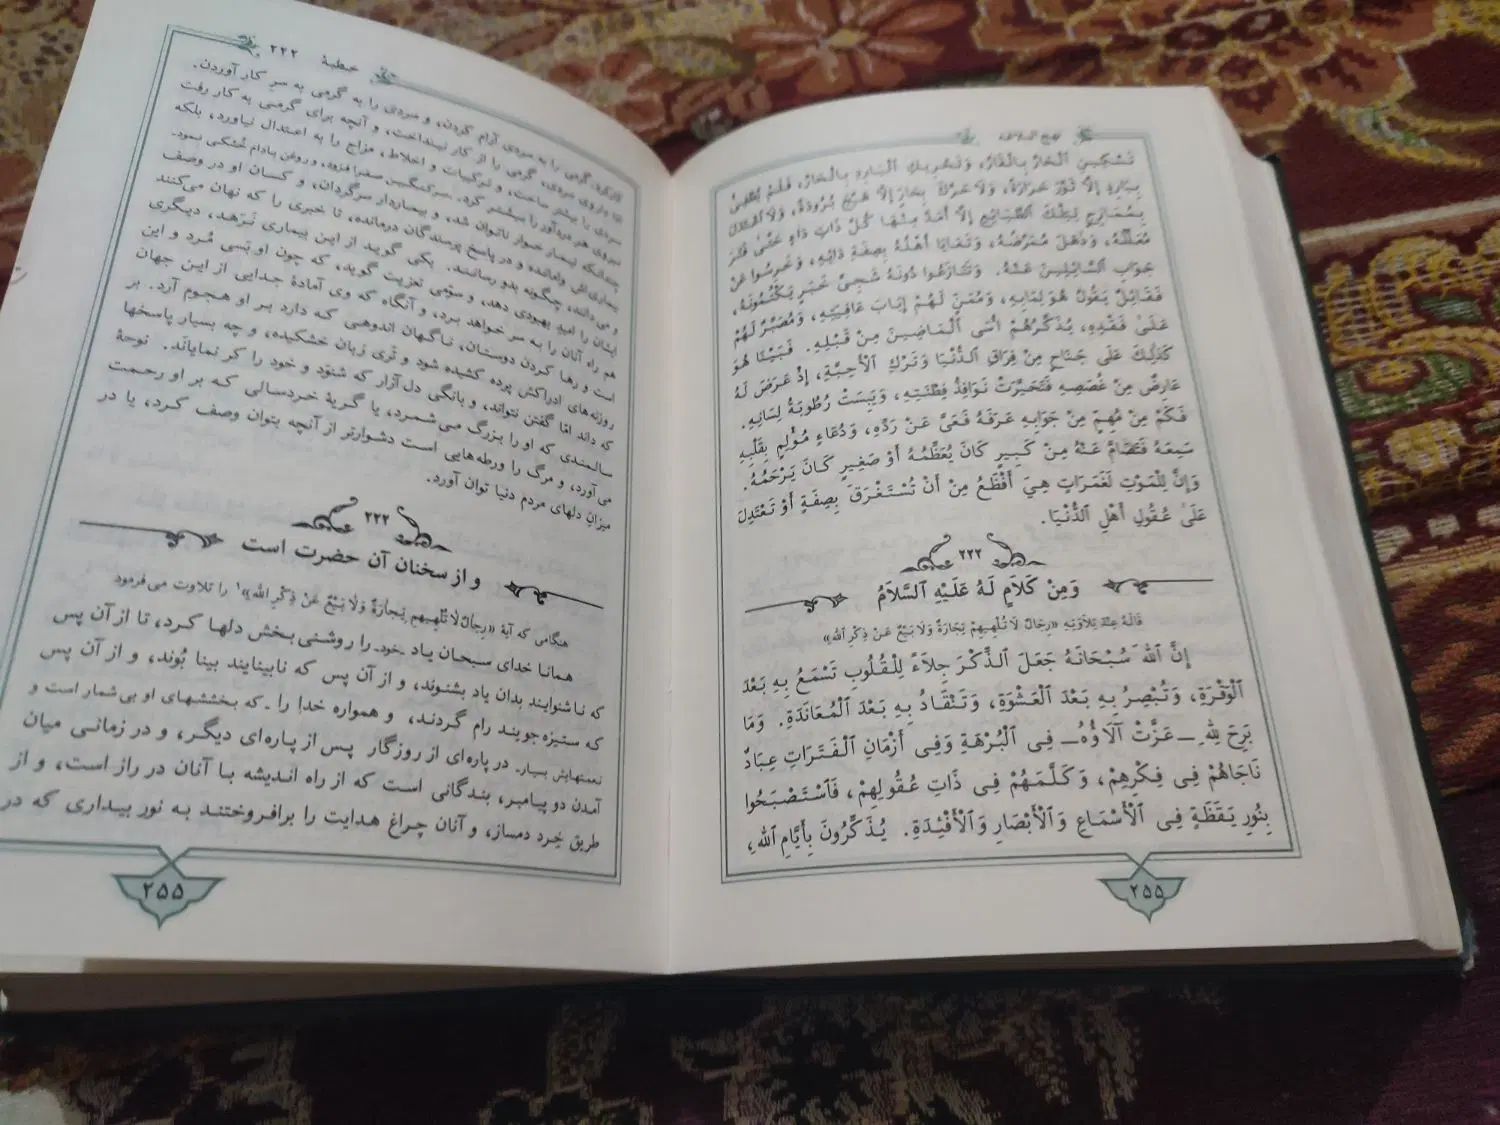 نهج البلاغه
تَسْكِينِ ٱلْحَارِّ بِالْقَارِّ، وَتَحْرِيكِ ٱلْبَارِدِ بِالْحَارِّ، فَلَمْ يُطْفِئْ
بِبَارِدٍ إِلَّا ثَوَّرَ حَرَارَةً، وَلَا حَرَّكَ بِحَارٍّ إِلَّا هَيَّجَ بُرُودَةً، وَلَا ٱعْتَدَلَ
بِمُمَازِجٍ لِتِلْكَ ٱلطَّبَائِعِ إِلَّا أَمَدَّ مِنْهَا كُلَّ ذَاتِ دَاءٍ حَتَّىٰ فَتَرَ
مُعَلِّلُهُ، وَذَهَلَ مُمَرِّضُهُ، وَتَعَايَا أَهْلُهُ بِصِفَةِ دَائِهِ، وَخَرِسُوا عَنْ
جَوَابِ ٱلسَّائِلِينَ عَنْهُ. وَتَنَازَعُوا دُونَهُ شَجِيَّ خَبَرٍ يَكْتُمُونَهُ،
فَقَائِلٌ يَقُولُ هُوَ لِمَا بِهِ، وَمُمَنٍّ لَهُمْ إِيَابَ عَافِيَتِهِ، وَمُصَبِّرٌ لَهُمْ
عَلَىٰ فَقْدِهِ، يُذَكِّرُهُمْ أُسَى ٱلْمَاضِينَ مِنْ قَبْلِهِ. فَبَيْنَا هُوَ
كَذَٰلِكَ عَلَى جَنَاحٍ مِنْ فِرَاقِ ٱلدُّنْيَا وَتَرْكِ ٱلْأَحِبَّةِ، إِذْ عَرَضَ لَهُ
عَارِضٌ مِنْ غُصَصِهِ فَتَحَيَّرَتْ نَوَافِذُ فِطْنَتِهِ، وَيَبِسَتْ رُطُوبَةُ لِسَانِهِ.
فَكَمْ مِنْ مُهِمٍّ مِنْ جَوَابِهِ عَرَفَهُ فَعَيَّ عَنْ رَدِّهِ، وَدُعَاءٍ مُؤْلِمٍ بِقَلْبِهِ
سَمِعَهُ فَتَصَامَّ عَنْهُ مِنْ كَبِيرٍ كَانَ يُعَظِّمُهُ أَوْ صَغِيرٍ كَانَ يَرْحَمُهُ.
وَإِنَّ لِلْمَوْتِ لَغَمَرَاتٍ هِيَ أَفْظَعُ مِنْ أَنْ تُسْتَغْرَقَ بِصِفَةٍ أَوْ تَعْتَدِلَ
عَلَىٰ عُقُولِ أَهْلِ ٱلدُّنْيَا.
۲۲۲
وَمِنْ كَلَامٍ لَهُ عَلَيْهِ ٱلسَّلَامُ
قَالَهُ عِنْدَ تِلَاوَتِهِ «رِجَالٌ لَا تُلْهِيهِمْ تِجَارَةٌ وَلَا بَيْعٌ عَنْ ذِكْرِ ٱللهِ»
إِنَّ ٱللهَ سُبْحَانَهُ جَعَلَ ٱلذِّكْرَ جِلَاءً لِلْقُلُوبِ تَسْمَعُ بِهِ بَعْدَ
ٱلْوَقْرَةِ، وَتُبْصِرُ بِهِ بَعْدَ ٱلْعَشْوَةِ، وَتَنْقَادُ بِهِ بَعْدَ ٱلْمُعَانَدَةِ. وَمَا
بَرِحَ لِلهِ ـ عَزَّتْ آلَاؤُهُ ـ فِي ٱلْبُرْهَةِ بَعْدَ ٱلْبُرْهَةِ وَفِي أَزْمَانِ ٱلْفَتَرَاتِ عِبَادٌ
نَاجَاهُمْ فِي فِكْرِهِمْ، وَكَلَّمَهُمْ فِي ذَاتِ عُقُولِهِمْ، فَٱسْتَصْبَحُوا
بِنُورِ يَقَظَةٍ فِي ٱلْأَسْمَاعِ وَٱلْأَبْصَارِ وَٱلْأَفْئِدَةِ. يُذَكِّرُونَ بِأَيَّامِ ٱللهِ،
۲۵۵
خطبهٔ ۲۲۲
گرمی را به سردی آرام کردن، و سردی را به گرمی به سر کار آوردن.
داروی سردی، گرمی را از کار نینداخت، و آنچه برای گرمی به کار رفت
سردی را بیشتر ساخت، و ترکیبات و اخلاط، مزاج را به اعتدال نیاورد، بلکه
نیروی هر دردآور را بیشتر کرد. سرکنگبین صفرا فزود، و روغن بادام خشکی نمود.
چندانکه تیماردار ناتوان شد، و بیماردار سرگردان، و کسان او در وصف
بیماری‌اش وامانده و در پاسخ پرسندگان درمانده، تا خبری را که نهان می‌کنند
و می‌دانند، چگونه بدو رسانند. یکی گوید از این بیماری نَرَهد، دیگری
ایشان را امید بهبودی دهد، و سوّمی تعزیت گوید، که چون او بَسی مُرد و این
هم راه آنان را به سر خواهد برد، و آنگاه که وی آمادهٔ جدایی از این جهان
است و رها کردن دوستان، ناگهان اندوهی که دارد بر او هجوم آرد. بر
روزنه‌های ادراکش پرده کشیده شود و تَری زبان خشکیده، و چه بسیار پاسخها
که داند امّا گفتن نتواند، و بانگی دل آزار که شنوَد و خود را کر نمایاند. نوحهٔ
سالمندی که او را بزرگ می‌شمرد، یا گریهٔ خردسالی که بر او رحمت
می‌آورد، و مرگ را ورطه‌هایی است دشوارتر از آنچه بتوان وصف کرد، یا در
میزانِ دلهای مردم دنیا توان آورد.
۲۲۲
و از سخنان آن حضرت است
هنگامی که آیهٔ «رِجَالٌ لَا تُلْهِيهِمْ تِجَارَةٌ وَلَا بَيْعٌ عَنْ ذِكْرِ الله»۱ را تلاوت می‌فرمود
همانا خدای سبحان یاد ـخودـ را روشنی‌بخش دلها کرد، تا از آن پس
که ناشنوایند بدان یاد بشنوند، و از آن پس که نابینایند بینا بُوند، و از آن پس
که ستیزه‌جویند رام گردند، و همواره خدا را ـ که بخششهای او بی‌شمار است و
نعمتهایش بسیارـ در پاره‌ای از روزگار پس از پاره‌ای دیگر، و در زمانی میان
آمدن دو پیامبر، بندگانی است که از راه اندیشه با آنان در راز است، و از
طریق خِرد دمساز، و آنان چراغ هدایت را برافروختند به نور بیداری که در
۲۵۵